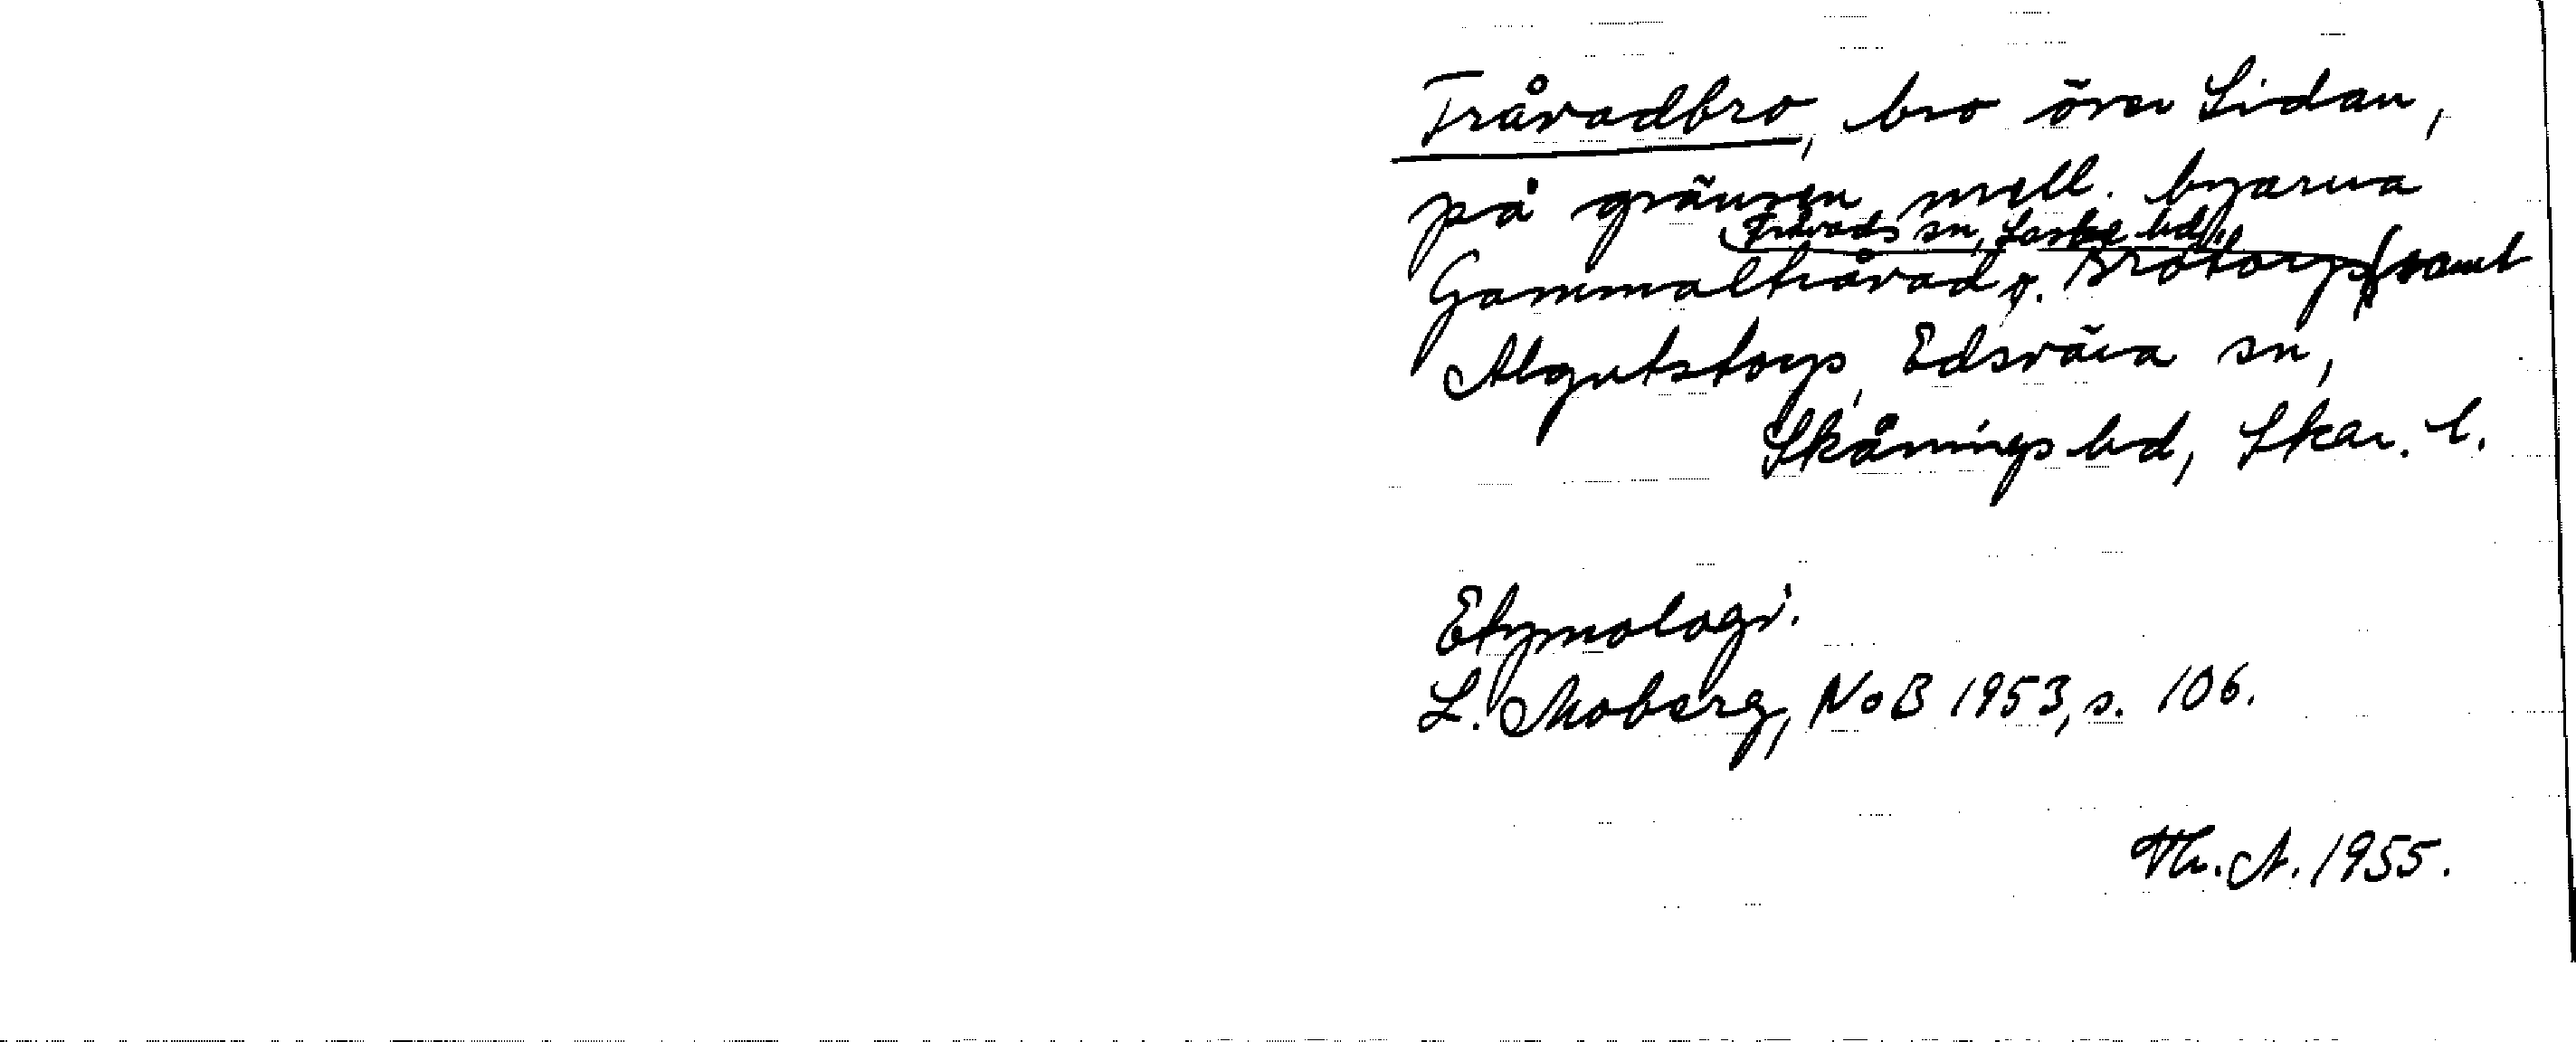 Tråvadbro, bro över Lidan,
på gränsen mell. byarna
Tråvads sn, Laske hd,
Gammaltråvad o. Brotorp samt
Algutstorp, Edsvära sn,
Skånings hd, Skar. l.
Etymologi.
L. Moberg, NoB 1953, s. 106.
Th. A. 1955.